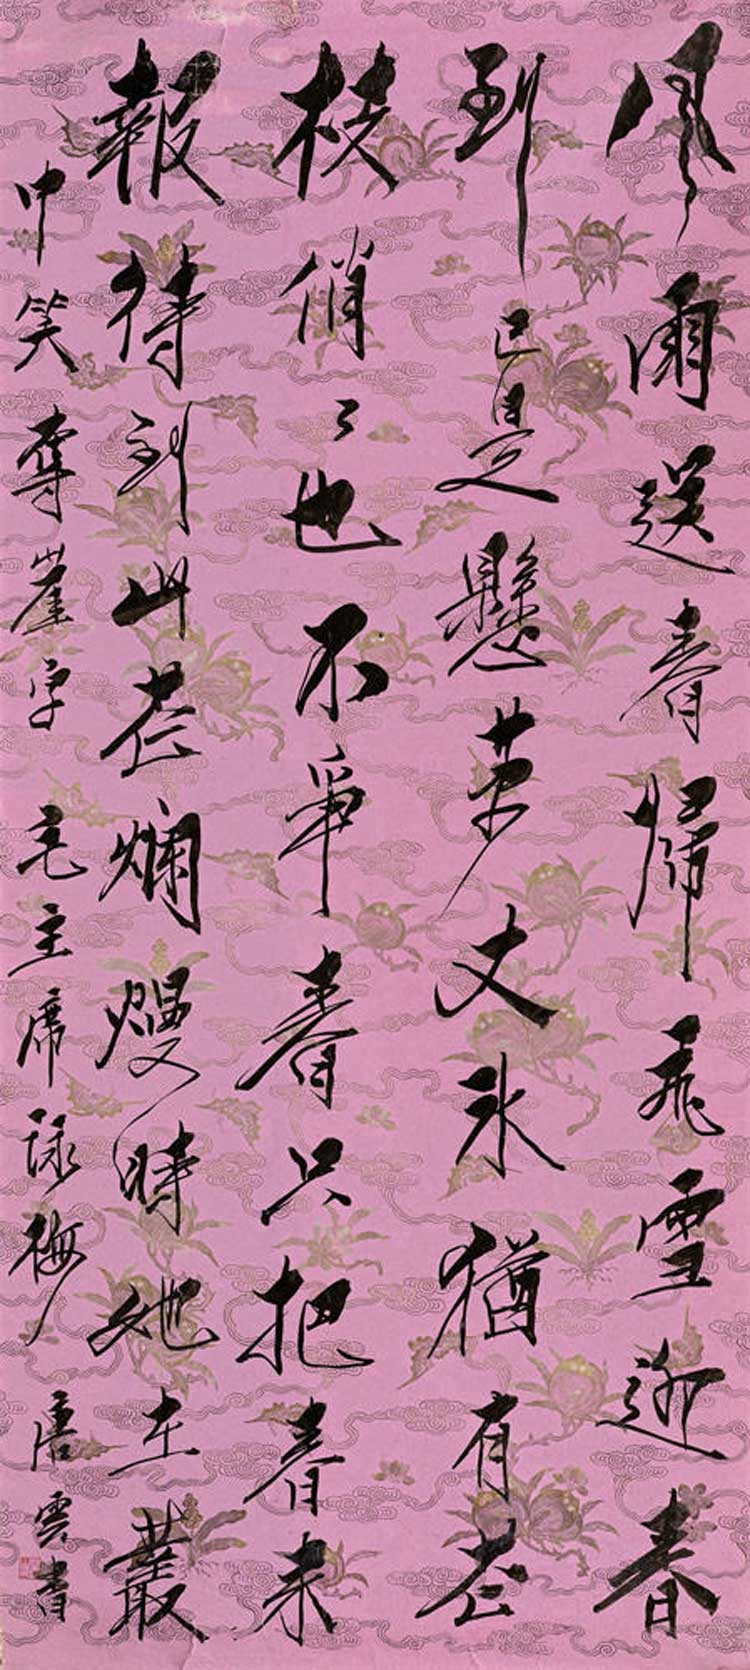 風雨送春歸飛雪迎春
到已是懸萬丈冰猶有花
枝俏々也不爭春只把春来
報待到山花爛熳時她在叢
中笑 奪崖字 毛主席詠梅 唐雲書